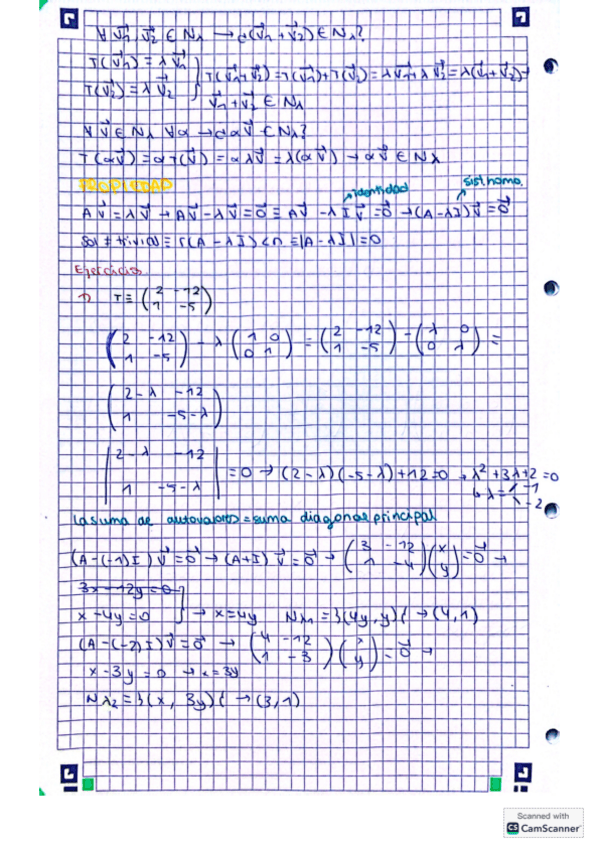 ∀ v⃗1, v⃗2 ∈ Nλ → ¿(v⃗1 + v⃗2) ∈ Nλ?
T(v⃗1) = λ v⃗1
T(v⃗2) = λ v⃗2 } T(v⃗1+v⃗2) = T(v⃗1)+T(v⃗2) = λv⃗1+λv⃗2 = λ(v⃗1+v⃗2) →
v⃗1 + v⃗2 ∈ Nλ
∀ v⃗ ∈ Nλ ∀α → ¿αv⃗ ∈ Nλ?
T(αv⃗) = αT(v⃗) = αλv⃗ = λ(αv⃗) → αv⃗ ∈ Nλ
PROPIEDAD
identidad sist. homo.
Av⃗ = λv⃗ → Av⃗ - λv⃗ = 0⃗ ≡ Av⃗ - λIv⃗ = 0⃗ → (A-λI)v⃗ = 0⃗
Sol ≠ trivial ≡ r(A - λI) < n ≡ |A - λI| = 0
Ejercicios
1) T ≡ (2 -12
1 -5)
(2 -12
1 -5) - λ (1 0
0 1) = (2 -12
1 -5) - (λ 0
0 λ) =
(2-λ -12
1 -5-λ)
|2-λ -12
1 -5-λ| = 0 → (2-λ)(-5-λ)+12=0 → λ²+3λ+2=0
↳ λ = -1
-2
La suma de autovalores = suma diagonal principal
(A-(-1)I)v⃗ = 0⃗ → (A+I)v⃗ = 0⃗ → (3 -12
1 -4)(x
y) = 0⃗ →
3x-12y=0
x-4y=0 } → x=4y Nλ1 = {(4y, y)} → (4,1)
(A-(-2)I)v⃗ = 0⃗ → (4 -12
1 -3)(x
y) = 0⃗ →
x-3y=0 → x=3y
Nλ2 = {(x, 3y)} → (3,1)
Scanned with
CS CamScanner